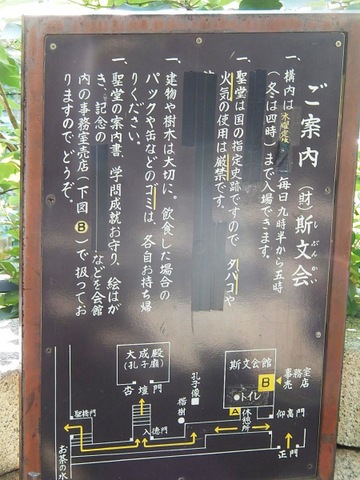 ご案内 (財)斯文会
しぶんかい
一、構内は 毎日九時半から五時
(冬は四時)まで入場できます。
一、聖堂は国の指定史跡ですので タバコや
火気の使用は厳禁です。
建物や樹木は大切に。飲食した場合の
パックや缶などのゴミは 各自お持ち帰
りください。
一、聖堂の案内書、学問成就お守り、絵はが
き、記念の などを会館
内の事務室売店(下図Ⓑ)で扱ってお
りますので どうぞ。
大成殿
(孔子廟)
杏壇門
孔子像
楷樹
斯文会館
トイレ
B
事務室
売店
A
休憩所
仰高門
正門
入徳門
聖橋門
お茶の水